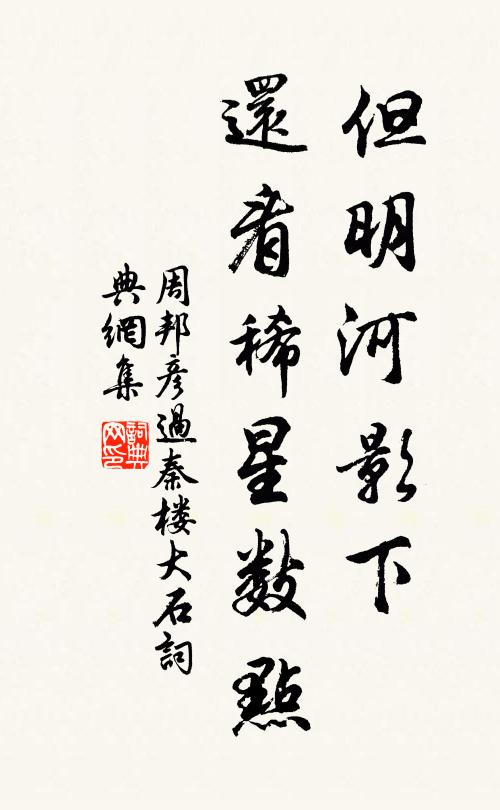 但明河影下
還看稀星數點
周邦彥過秦楼大石詞
典網集
詞典网印